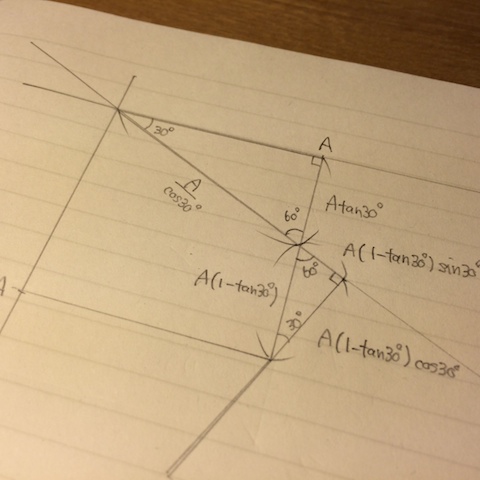 A
30°
A/cos30°
Atan30°
60°
A(1-tan30°)sin30°
60°
A(1-tan30°)
A
30°
A(1-tan30°)cos30°